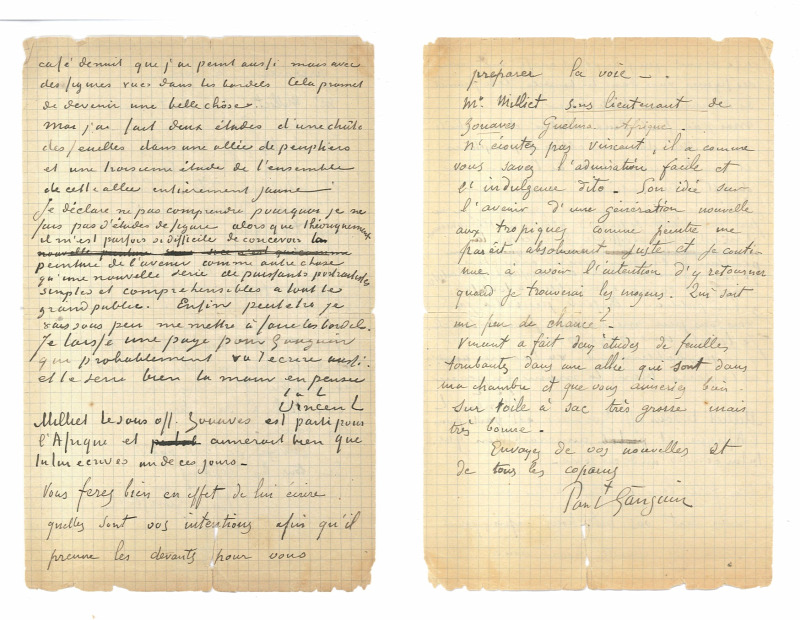 café de nuit que j'ai peint aussi mais avec
des figures vues dans les bordels Cela promet
de devenir une belle chose.
moi j'ai fait deux études d'une chûte
des feuilles dans une allée de peupliers
et une troisieme étude de l'ensemble
de cette allée entièrement jaune
Je déclare ne pas comprendre pourquoi je ne
fais pas d'études de figure alors que théoriquement
il m'est parfois si difficile de concevoir la
peinture de l'avenir comme autre chose
qu'une nouvelle serie de puissants portraitistes
simples et comprehensibles à tout le
grand public. Enfin peut etre je
vais sous peu me mettre à faire les bordels.
Je laisse une page pour Gauguin
qui probablement va t'ecrire aussi.
et te serre bien la main en pensée
t. à t.
Vincent
Milliet le sous off. Zouaves est parti pour
l'Afrique et aimerait bien que
tu lui ecrives un de ces jours –
Vous ferez bien en effet de lui écrire
quelles sont vos intentions afin qu'il
prenne les devants pour vous
préparer la voie –.
Mr. Milliet sous lieutenant de
Zouaves Guelma Afrique.
N'écoutez pas Vincent, il a comme
vous savez l'admiration facile et
l'indulgence dito – Son idée sur
l'avenir d'une génération nouvelle
aux tropiques comme peintre me
parait absolument juste et je conti-
nue à avoir l'intention d'y retourner
quand je trouverai les moyens. Qui sait
un peu de chance?..
Vincent a fait deux études de feuilles
tombantes dans une allée qui sont dans
ma chambre et que vous aimeriez bien.
Sur toile à sac très grosse mais
très bonne.
Envoyez de vos nouvelles et
de tous les copains
Paul Gauguin